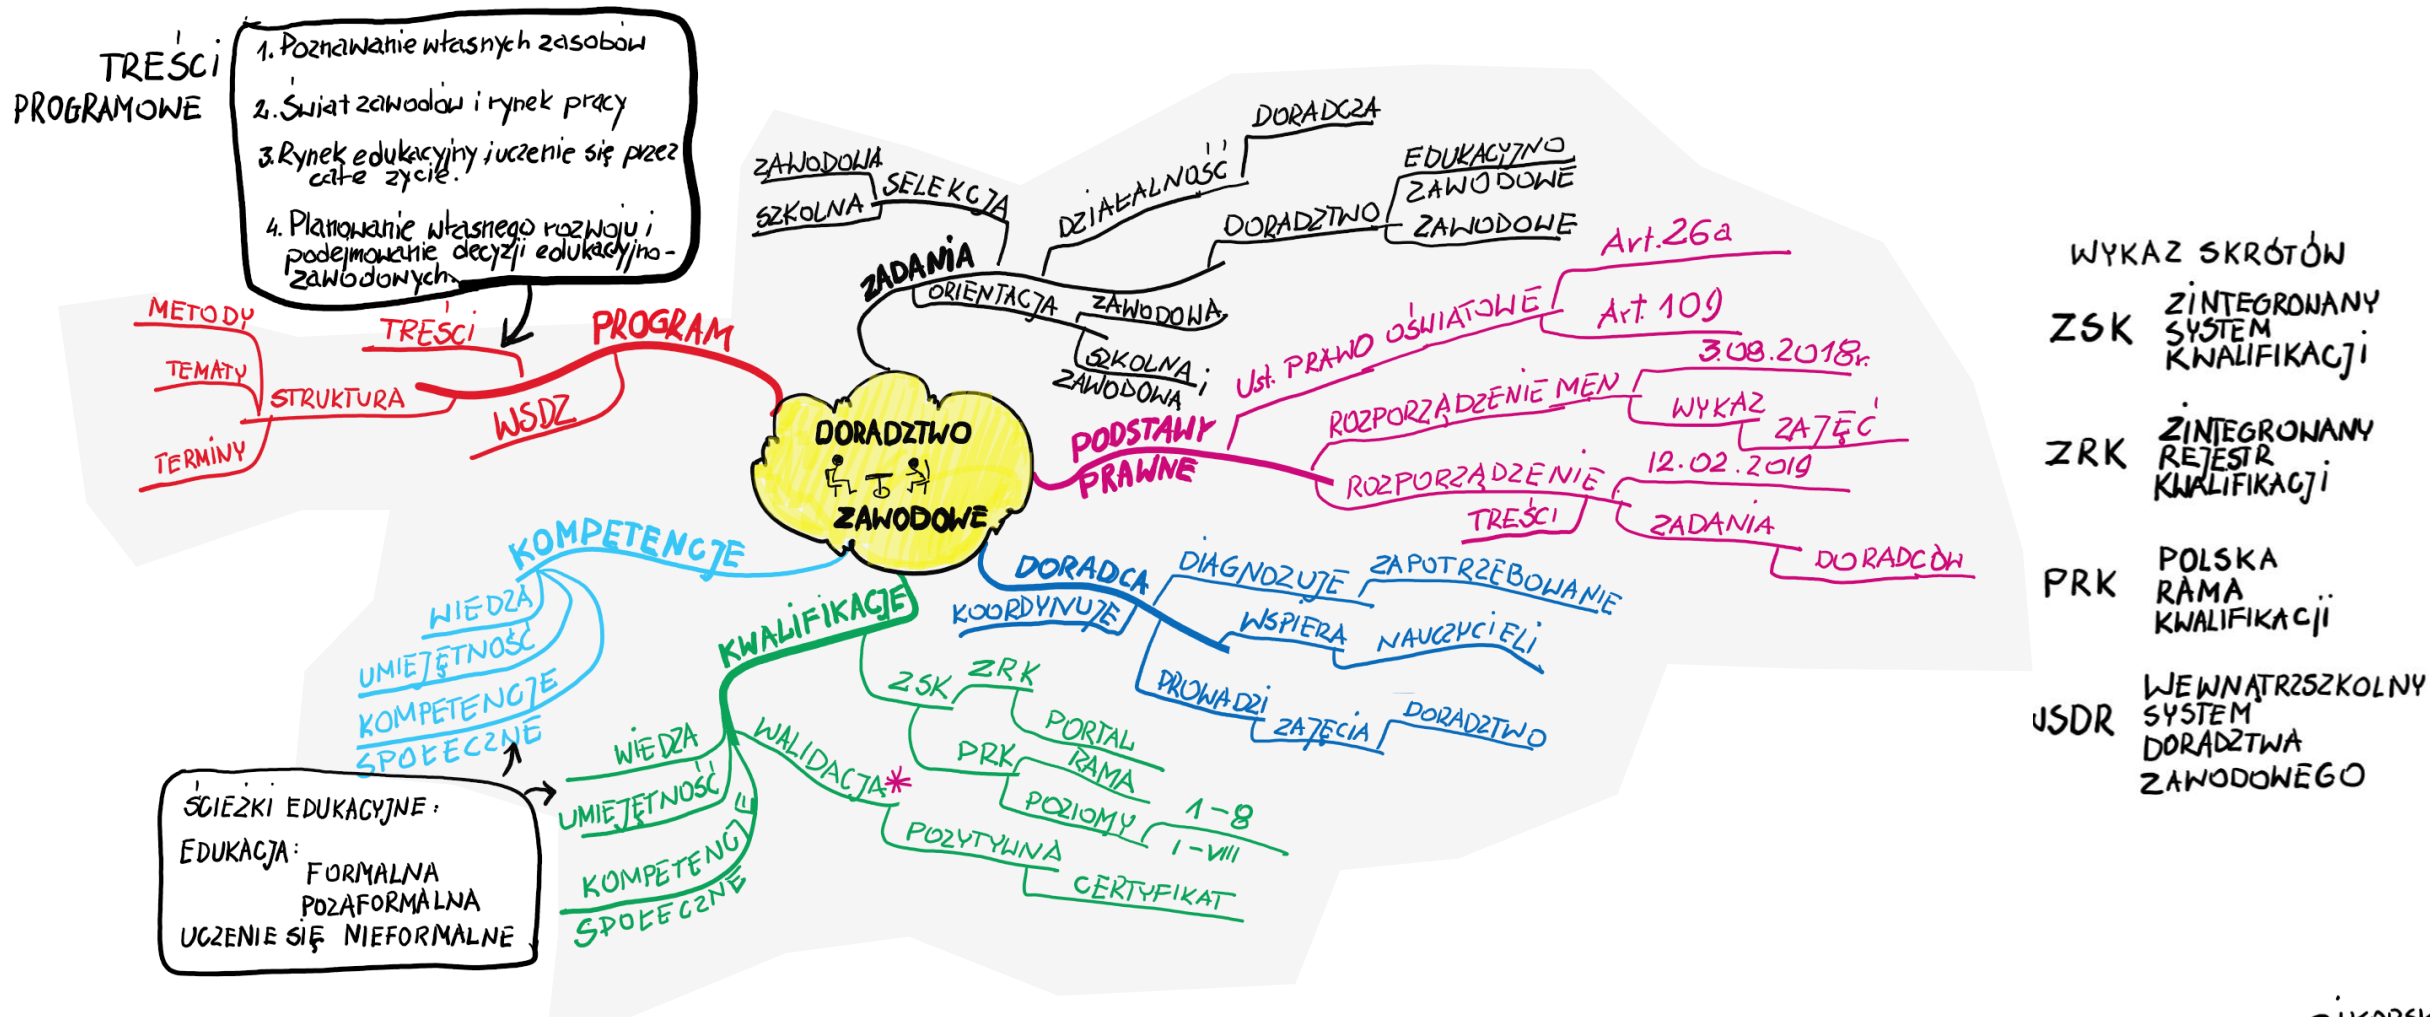 TREŚCI
PROGRAMOWE
1. Poznawanie własnych zasobów
2. Świat zawodów i rynek pracy
3. Rynek edukacyjny i uczenie się przez
całe życie.
4. Planowanie własnego rozwoju i
podejmowanie decyzji edukacyjno-
zawodowych.
METODY
TEMATY
TERMINY
STRUKTURA
TREŚCI
PROGRAM
WSDZ
ZAWODOWA
SZKOLNA
SELEKCJA
ZADANIA
DZIAŁALNOŚĆ
DORADCZA
DORADZTWO
EDUKACYJNO
ZAWODOWE
ZAWODOWE
ORIENTACJA
ZAWODOWA
SZKOLNA i
ZAWODOWA
DORADZTWO
ZAWODOWE
PODSTAWY
PRAWNE
Ust. PRAWO OŚWIATOWE
Art. 26a
Art. 109
ROZPORZĄDZENIE MEN
3.08.2018r.
WYKAZ
ZAJĘĆ
ROZPORZĄDZENIE
12.02.2019
TREŚCI
ZADANIA
DORADCÓW
DORADCA
KOORDYNUJE
DIAGNOZUJE
ZAPOTRZEBOWANIE
WSPIERA
NAUCZYCIELI
PROWADZI
ZAJĘCIA
DORADZTWO
KWALIFIKACJE
ZSK
ZRK
PORTAL
PRK
RAMA
POZIOMY
1-8
I-VIII
WALIDACJA*
POZYTYWNA
CERTYFIKAT
WIEDZA
UMIEJĘTNOŚĆ
KOMPETENCJE
SPOŁECZNE
KOMPETENCJE
WIEDZA
UMIEJĘTNOŚĆ
KOMPETENCJE
SPOŁECZNE
ŚCIEŻKI EDUKACYJNE:
EDUKACJA:
FORMALNA
POZAFORMALNA
UCZENIE SIĘ NIEFORMALNE
WYKAZ SKRÓTÓW
ZSK
ZINTEGROWANY
SYSTEM
KWALIFIKACJI
ZRK
ZINTEGROWANY
REJESTR
KWALIFIKACJI
PRK
POLSKA
RAMA
KWALIFIKACJI
WSDR
WEWNĄTRZSZKOLNY
SYSTEM
DORADZTWA
ZAWODOWEGO